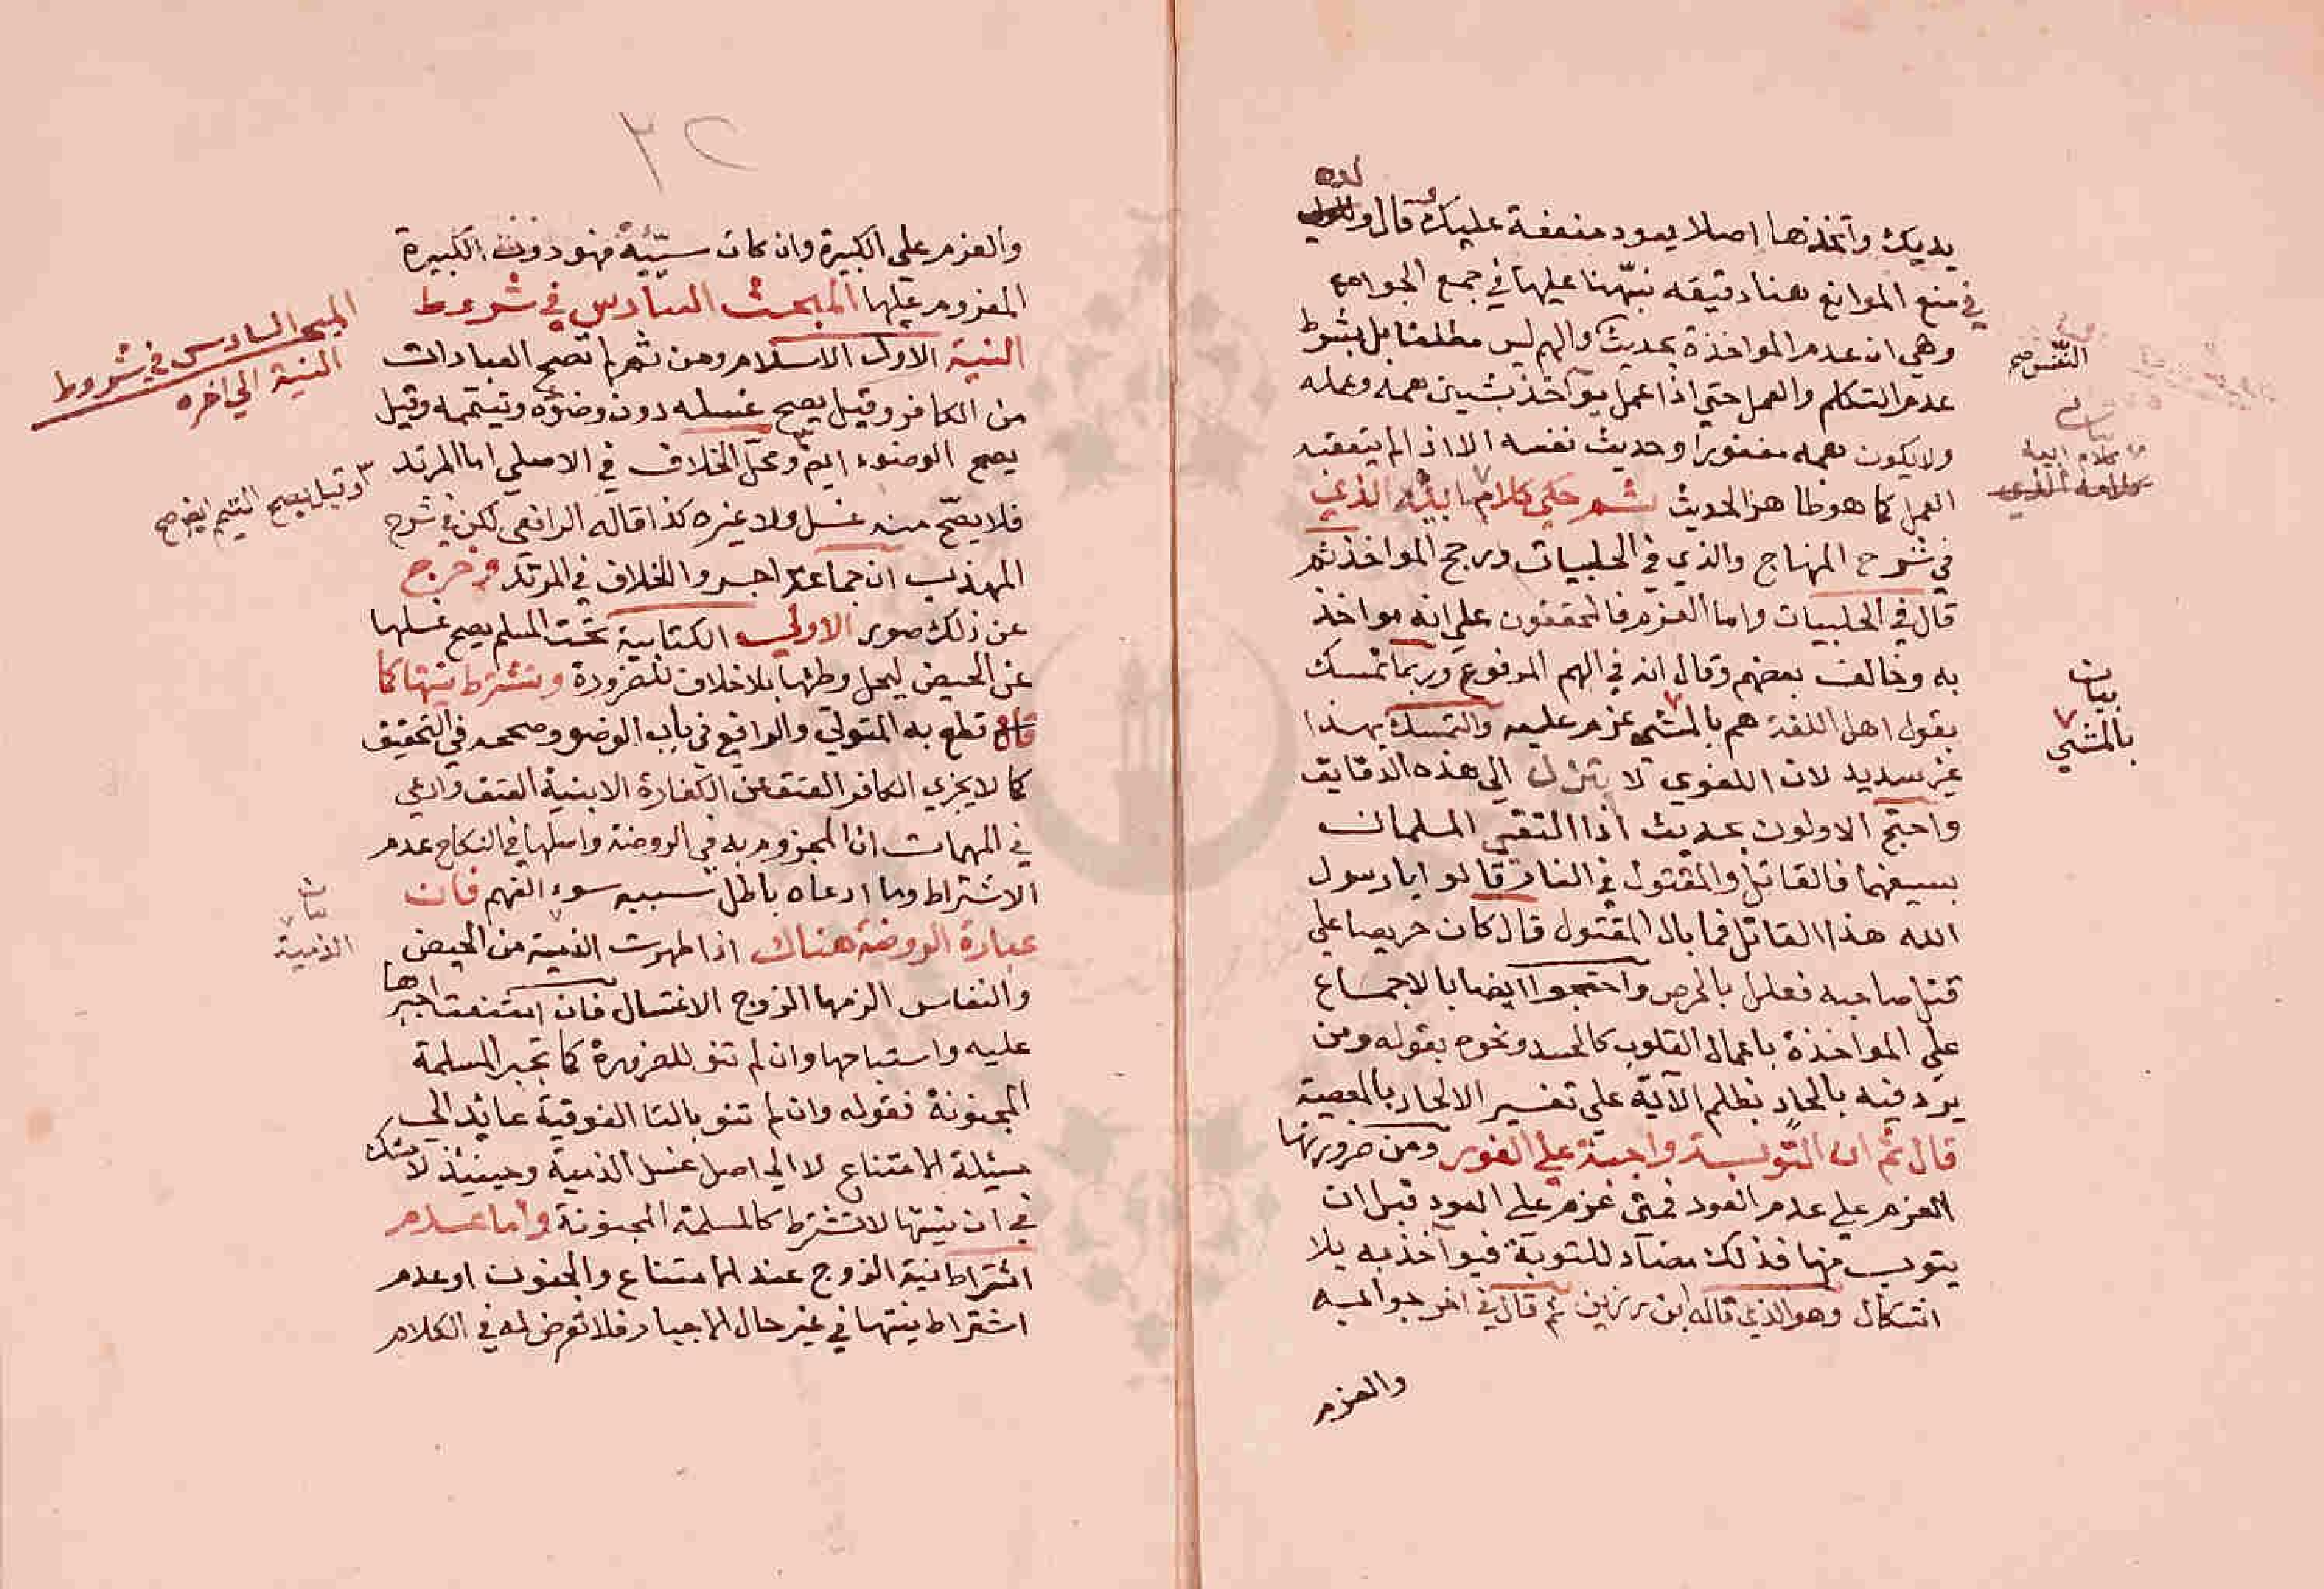 يديك واتخذها اصلا يعود منفعة عليك وقال ولده
في منع الموانع هنا دقيقه نبّهنا عليها في جمع الجوامع
وهي ان عدم المواخذة بحديث والهم ليس مطلقا بل بشرط
النّفس صح
عدم التكلم والعمل حتي اذا عمل يوآخذ بشيئين همه وعمله
ولا يكون همه مغفورا وحديث نفسه الا اذا لم يتعقبه
العمل كما هو ظاهر الحديث ثم حكي كلام ابيه الذي
بيان
كلام ابيه
في شرح المنهاج والذي في الحلبيات ورجح المواخذ ثم
قال في الحلبيات واما العزم فالمحققون علي انه مواخذ
به وخالف بعضهم وقال انه في الهم المرفوع وربما تمسك
بقول اهل اللغة هم بالشي عزم عليه والتمسك بهذا
بيان
بالشي
غير سديد لان اللغوي لا يتنزل الي هذه الدقايق
واحتج الاولون بحديث اذا التقي المسلمان
بسيفهما فالقاتل والمقتول في النار قالوا يا رسول
الله هذا القاتل فما بال المقتول قال كان حريصا علي
قتل صاحبه فعلل بالحرص واحتجوا ايضا بالاجماع
علي المواخذة باعمال القلوب كالحسد ونحوه بقوله ومن
يرد فيه بالحاد بظلم الآية علي تفسير الالحاد بالمعصية
قال ثم ان التوبة واجبة علي الفور ومن ضرورتها
العزم علي عدم العود فمتي عزم علي العود قبل ان
يتوب منها فذلك مضاد للتوبة فيوآخذ به بلا
اشكال وهو الذي قاله ابن رزين ثم قال في اخر جوابه
والعزم
٣٢
والعزم علي الكبيرة وان كان سيّئة فهو دون الكبيرة
المعزوم عليها المبحث السادس في شروط
المبحث السادس في شروط
النية الي اخره
النية الاول الاسلام ومن ثم لم تصح العبادات
من الكافر وقيل يصح غسله دون وضوئه وتيممه وقيل
يصح الوضوء ايض ومحل الخلاف في الاصلي اما المرتد
وقيل يصح التيمم ايض صح
فلا يصحّ منه غسل ولا غيره كذا قاله الرافعي لكن في شرح
المهذب ان جماعة اجروا الخلاف في المرتد وخرج
عن ذلك صور الاولي الكتابية تحت المسلم يصح غسلها
عن الحيض ليحل وطئها بلا خلاف للضرورة ويشترط نيتها كما
قطع به المتولي والرافعي في باب الوضو وصححه في التحقيق
كما لا يجزي الكافر العتق عن الكفارة الا بنية العتق وادعي
في المهمات ان المجزوم به في الروضة واصلها في النكاح عدم
الاشتراط وما ادعاه باطل سببه سوء الفهم فان
عبارة الروضة هناك اذا طهرت الذمية من الحيض
بيان
الذمية
والنفاس الزمها الزوج الاغتسال فان امتنعت اجبرها
عليه واستباحها وان لم تنو للضرورة كما تجبر المسلمة
المجنونة فقوله وان لم تنو بالتا الفوقية عائد الي
مسئلة الامتناع لا الي اصل غسل الذمية وحينئذ لا شك
في ان نيتها لا تشترط كالمسلمة المجنونة واما عدم
اشتراط نية الزوج عند الامتناع والجنون او عدم
اشتراط نيتها في غير حال الاجبار فلا تعرض له في الكلام